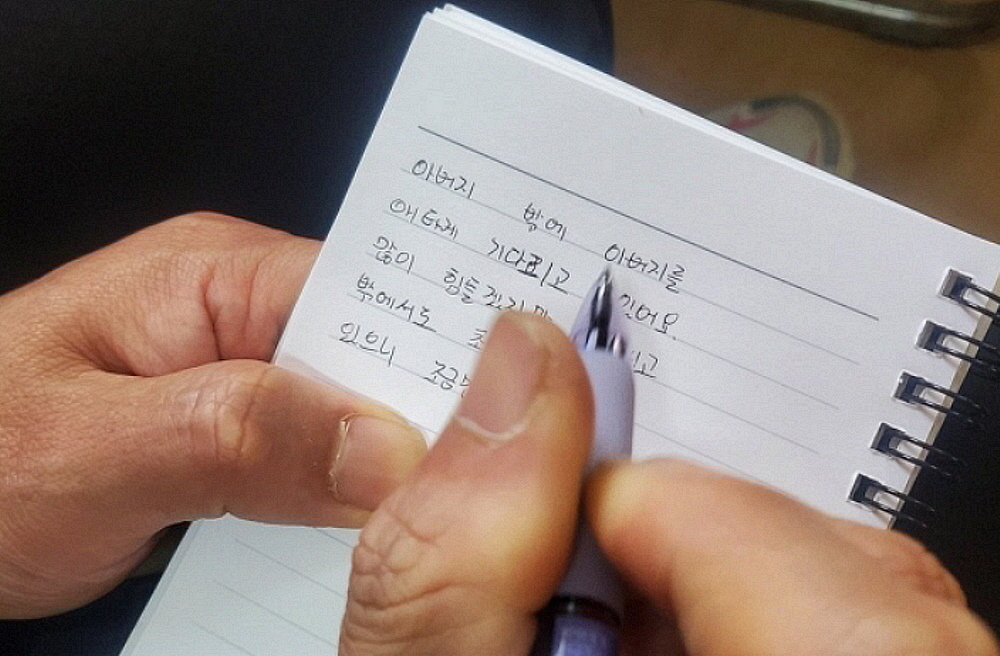 아버지 밖에 아버지를
애타게 기다리고 있어요.
많이 힘들겠지만
밖에서도
있으니 조금